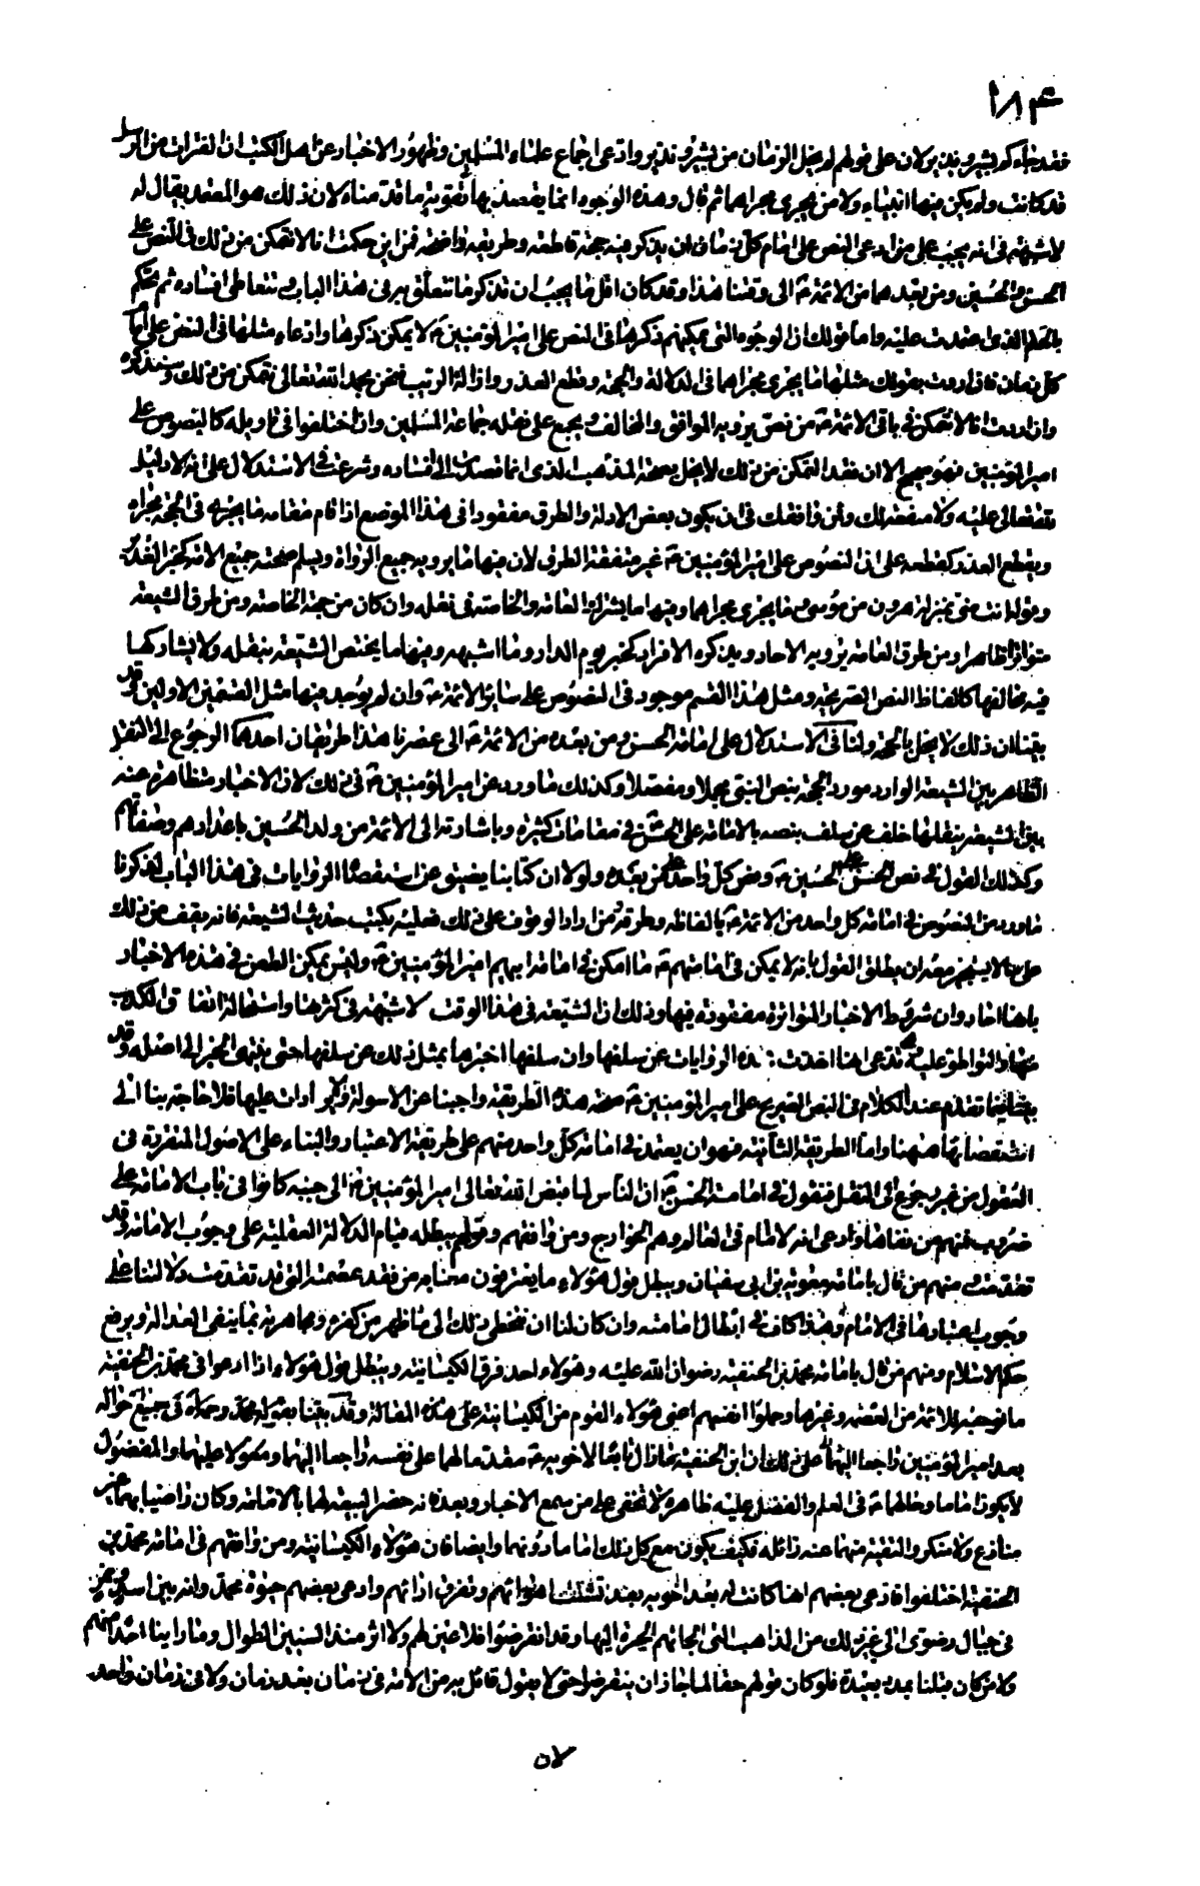 ١٨٤
فقد جاءكم بشير ونذير لان على قولهم لم يخل الزمان من بشير ونذير وادعى اجماع علماء المسلمين وظهور الاخبار عن اهل الكتب ان الفترات من الرسل
قد كانت ولم يكن فيها انبياء ولا من يجرى مجراهما ثم قال وهذه الوجوه انما يقصد بها تقوية ما قدمناه لان ذلك هو المعتمد يقال له
لا شبهة فى انه يجب على من ادعى النص على امام كل زمان ان يذكر فيه حجة قاطعة وطريقة واضحة فمن اين حكمت انا لا نتمكن من ذلك فى النص على
الحسن والحسين ومن بعدهما من الائمة الى وقتنا هذا وقد كان اقل ما يجب ان تذكر ما نتعلق به فى هذا الباب وتتعاطى افساده ثم تحكم
بالحكم الذى اعتمدت عليه واما قولك ان الوجوه التى يمكنهم ذكرها فى النص على امير المؤمنين لا يمكن ذكرها وادعاء مثلها فى النص على
كل زمان فان اردت بقولك مثلها ما يجرى مجراها فى الدلالة والحجة وقطع العذر وازالة الريب فنحن بحمد الله تعالى نتمكن من ذلك وسنذكره
وان اردت انا لا نتمكن فى باقى الائمة من نص يرويه الموافق والمخالف ويجمع على نقله جماعة المسلمين وان اختلفوا فى تاويله كالنصوص على
امير المؤمنين فهو صحيح الا ان فقد التمكن من ذلك لا يخل بصحة المذهب الذى انما قصدت الى افساده وشرعت فى الاستدلال على انه لا دليل
لله تعالى عليه ولا منفعة لك ولمن وافقك فى ان يكون بعض الادلة والطرق مفقودا فى هذا الموضع اذا قام مقامه ما يجرى فى الحجة مجراه
ويقطع العذر كقطعه على ان النصوص على امير المؤمنين غير متفقة الطرق لان فيها ما يرويه جميع الرواة ويسلم صحته جميع الامة كخبر الغدير
وقوله انت منى بمنزلة هرون من موسى وما يجرى مجراهما وفيها ما يشترك العامة والخاصة فى نقله وان كان من جهة الخاصة ومن طرق الشيعة
متواترا ظاهرا ومن طرق العامة يرويه الاحاد ويذكره الافراد كخبر يوم الدار وما اشبهه وفيها ما يختص الشيعة بنقله ولا يشاركها
فيه مخالفها كالفاظ النص الصريحة ومثل هذا القسم موجود فى النصوص على سائر الائمة وان لم يوجد فيها مثل القسمين الاولين وقد
بينا ان ذلك لا يخل بالحجة ولنا فى الاستدلال على امامة الحسن ومن بعده من الائمة الى عصرنا هذا طريقان احدهما الرجوع الى النقل
الظاهر بين الشيعة الوارد مورد الحجة بنص النبى مجملا ومفصلا وكذلك ما ورد عن امير المؤمنين فى ذلك لان الاخبار متظاهرة عنه
بين الشيعة ينقلها خلف عن سلف بنصه بالامامة على الحسن فى مقامات كثيرة وباشارته الى الائمة من ولد الحسين باعدادهم وصفاتهم
وكذلك القول فى نص الحسن على الحسين ونص كل واحد على من بعده ولولا ان كتابنا يضيق عن استقصاء الروايات فى هذا الباب لذكرنا
ما ورد من النصوص فى امامة كل واحد من الائمة بالفاظه وطرقه ومن اراد الوقوف على ذلك فعليه بكتب حديث الشيعة فانه يقف من ذلك
على ما لا يستجيز معه ان يطلق القول بانه لا يمكن فى امامتهم ما امكن فى امامة ابيهم امير المؤمنين وليس يمكن الطعن فى هذه الاخبار
بانها احاد وان شروط الاخبار المتواترة مفقودة فيها وذلك ان الشيعة فى هذا الوقت لا شبهة فى كثرتها واستحالة اتفاق الكذب
منها والتواطؤ عليه وهى تدعى انها اخذت هذه الروايات عن سلفها وان سلفها اخبرها بمثل ذلك عن سلفها حتى ينتهى الخبر الى اصله وقد
بينا فيما تقدم عند الكلام فى النص الصريح على امير المؤمنين صحة هذه الطريقة واجبنا عن الاسولة والايرادات عليها فلا حاجة بنا الى
استقصائها هيهنا واما الطريقة الثانية فهو ان يعتمد فى امامة كل واحد منهم على طريقة الاعتبار والبناء على الاصول المتقررة فى
العقول من غير رجوع الى النقل فنقول فى امامة الحسن ان الناس لما قبض الله تعالى امير المؤمنين الى جنبه كانوا فى باب الامامة على
ضروب فمنهم من نفاها وادعى انه لا امام فى العالم وهم الخوارج ومن وافقهم وقولهم يبطله قيام الدلالة العقلية على وجوب الامامة وقد
تقدمت ومنهم من قال بامامة معوية بن ابى سفيان ويبطل قول هؤلاء ما يعترفون معنا به من فقد عصمته التى قد تقدمت دلالتنا على
وجوب اعتبارها فى الامام وهذا كاف فى ابطال امامته وان كان لنا ان نتخطى ذلك الى ما ظهر من كفره ومجاهرته بما ينفى العدالة ويرفع
حكم الاسلام ومنهم من قال بامامة محمد بن الحنفية رضوان الله عليه وهؤلاء احد فرق الكيسانية ويبطل قول هؤلاء اذا ادعوا فى محمد بن الحنفية
ما نوجبه للائمة من العصمة وغيرها وحملوا انفسهم اعنى هؤلاء القوم من الكيسانية على هذه المقالة وقد بقينا بقوله محمد وحاله فى جميع احواله
بعد امير المؤمنين راجعا اليهما على ذلك ان ابن الحنفية ما زال تابعا لاخويه مقدما لهما على نفسه راجعا اليهما ومعولا عليهما والمفضول
لا يكون اماما وحالهما فى العلم والفضل عليه ظاهرة لا تخفى على من سمع الاخبار وبعد فانه حضر البيعة لهما بالامامة وكان راضيا بهما غير
منازع ولا منكر والتقية منهما عنه زائلة فكيف يكون مع كل ذلك اماما دونهما وايضا فان هؤلاء الكيسانية ومن وافقهم فى امامة محمد بن
الحنفية اختلفوا فادعى بعضهم انها كانت له بعد اخويه بعد تشتت اهوائهم وتفرق ارائهم وادعى بعضهم حيوة محمد وانه بين اسد ونمر
فى جبال رضوى الى غير ذلك من المذاهب التى الجاتهم الحيرة اليها وقد انقرضوا فلا عين لهم ولا اثر منذ السنين الطوال وما راينا احدا منهم
ولا من كان قبلنا بمدة بعيدة فلو كان قولهم حقا لما جاز ان ينقرضوا حتى لا يقول قائل به من الامة فى زمان بعد زمان ولا فى زمان واحد